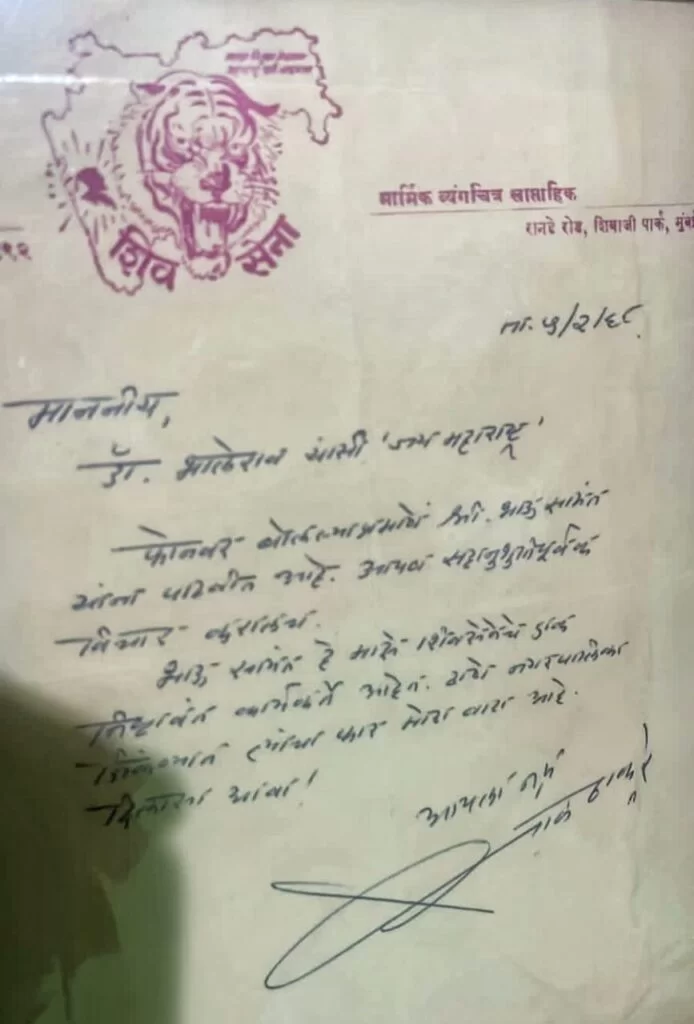 शिव सेना
मार्मिक व्यंगचित्र साप्ताहिक
रानडे रोड, शिवाजी पार्क, मुंब
ता. ५/२/६८
माननीय,
डॉ. भालेराव यांसी 'जय महाराष्ट्र'
फोनवर बोलल्याप्रमाणे श्री. भाऊ सामंत
यांना पाठवीत आहे. आपण सहानुभूतीपूर्वक
विचार करालच.
भाऊ सामंत हे माझे शिवसेनेचे एक
निष्ठावंत कार्यकर्ते आहेत. ठाणे नगरपालिका
जिंकण्यात त्यांचा फार मोठा वाटा आहे.
आपला नम्र
बाळ ठाकरे